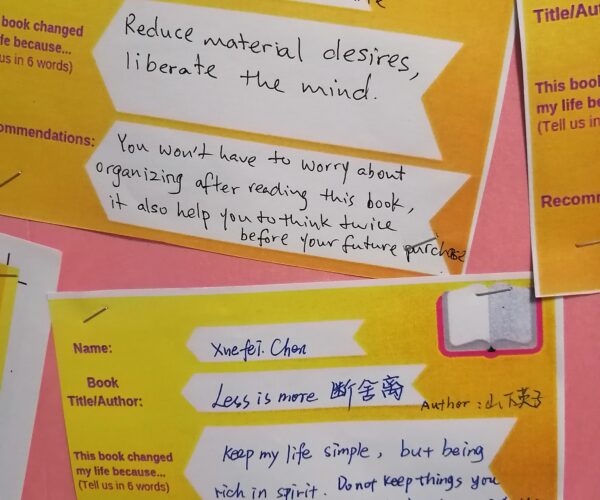 book changed
fe because...
us in 6 words)
Reduce material desires,
liberate the mind.
ommendations:
You won't have to worry about
organizing after reading this book,
it also help you to think twice
before your future purchase
Title/Au
This boo
my life be
(Tell us in
Recomm
Name:
Xuefei. Chen
Book
Title/Author:
Less is more 断舍离
Author : 山下英子
This book changed
my life because...
(Tell us in 6 words)
Keep my life simple, but being
rich in spirit. Do not keep things you